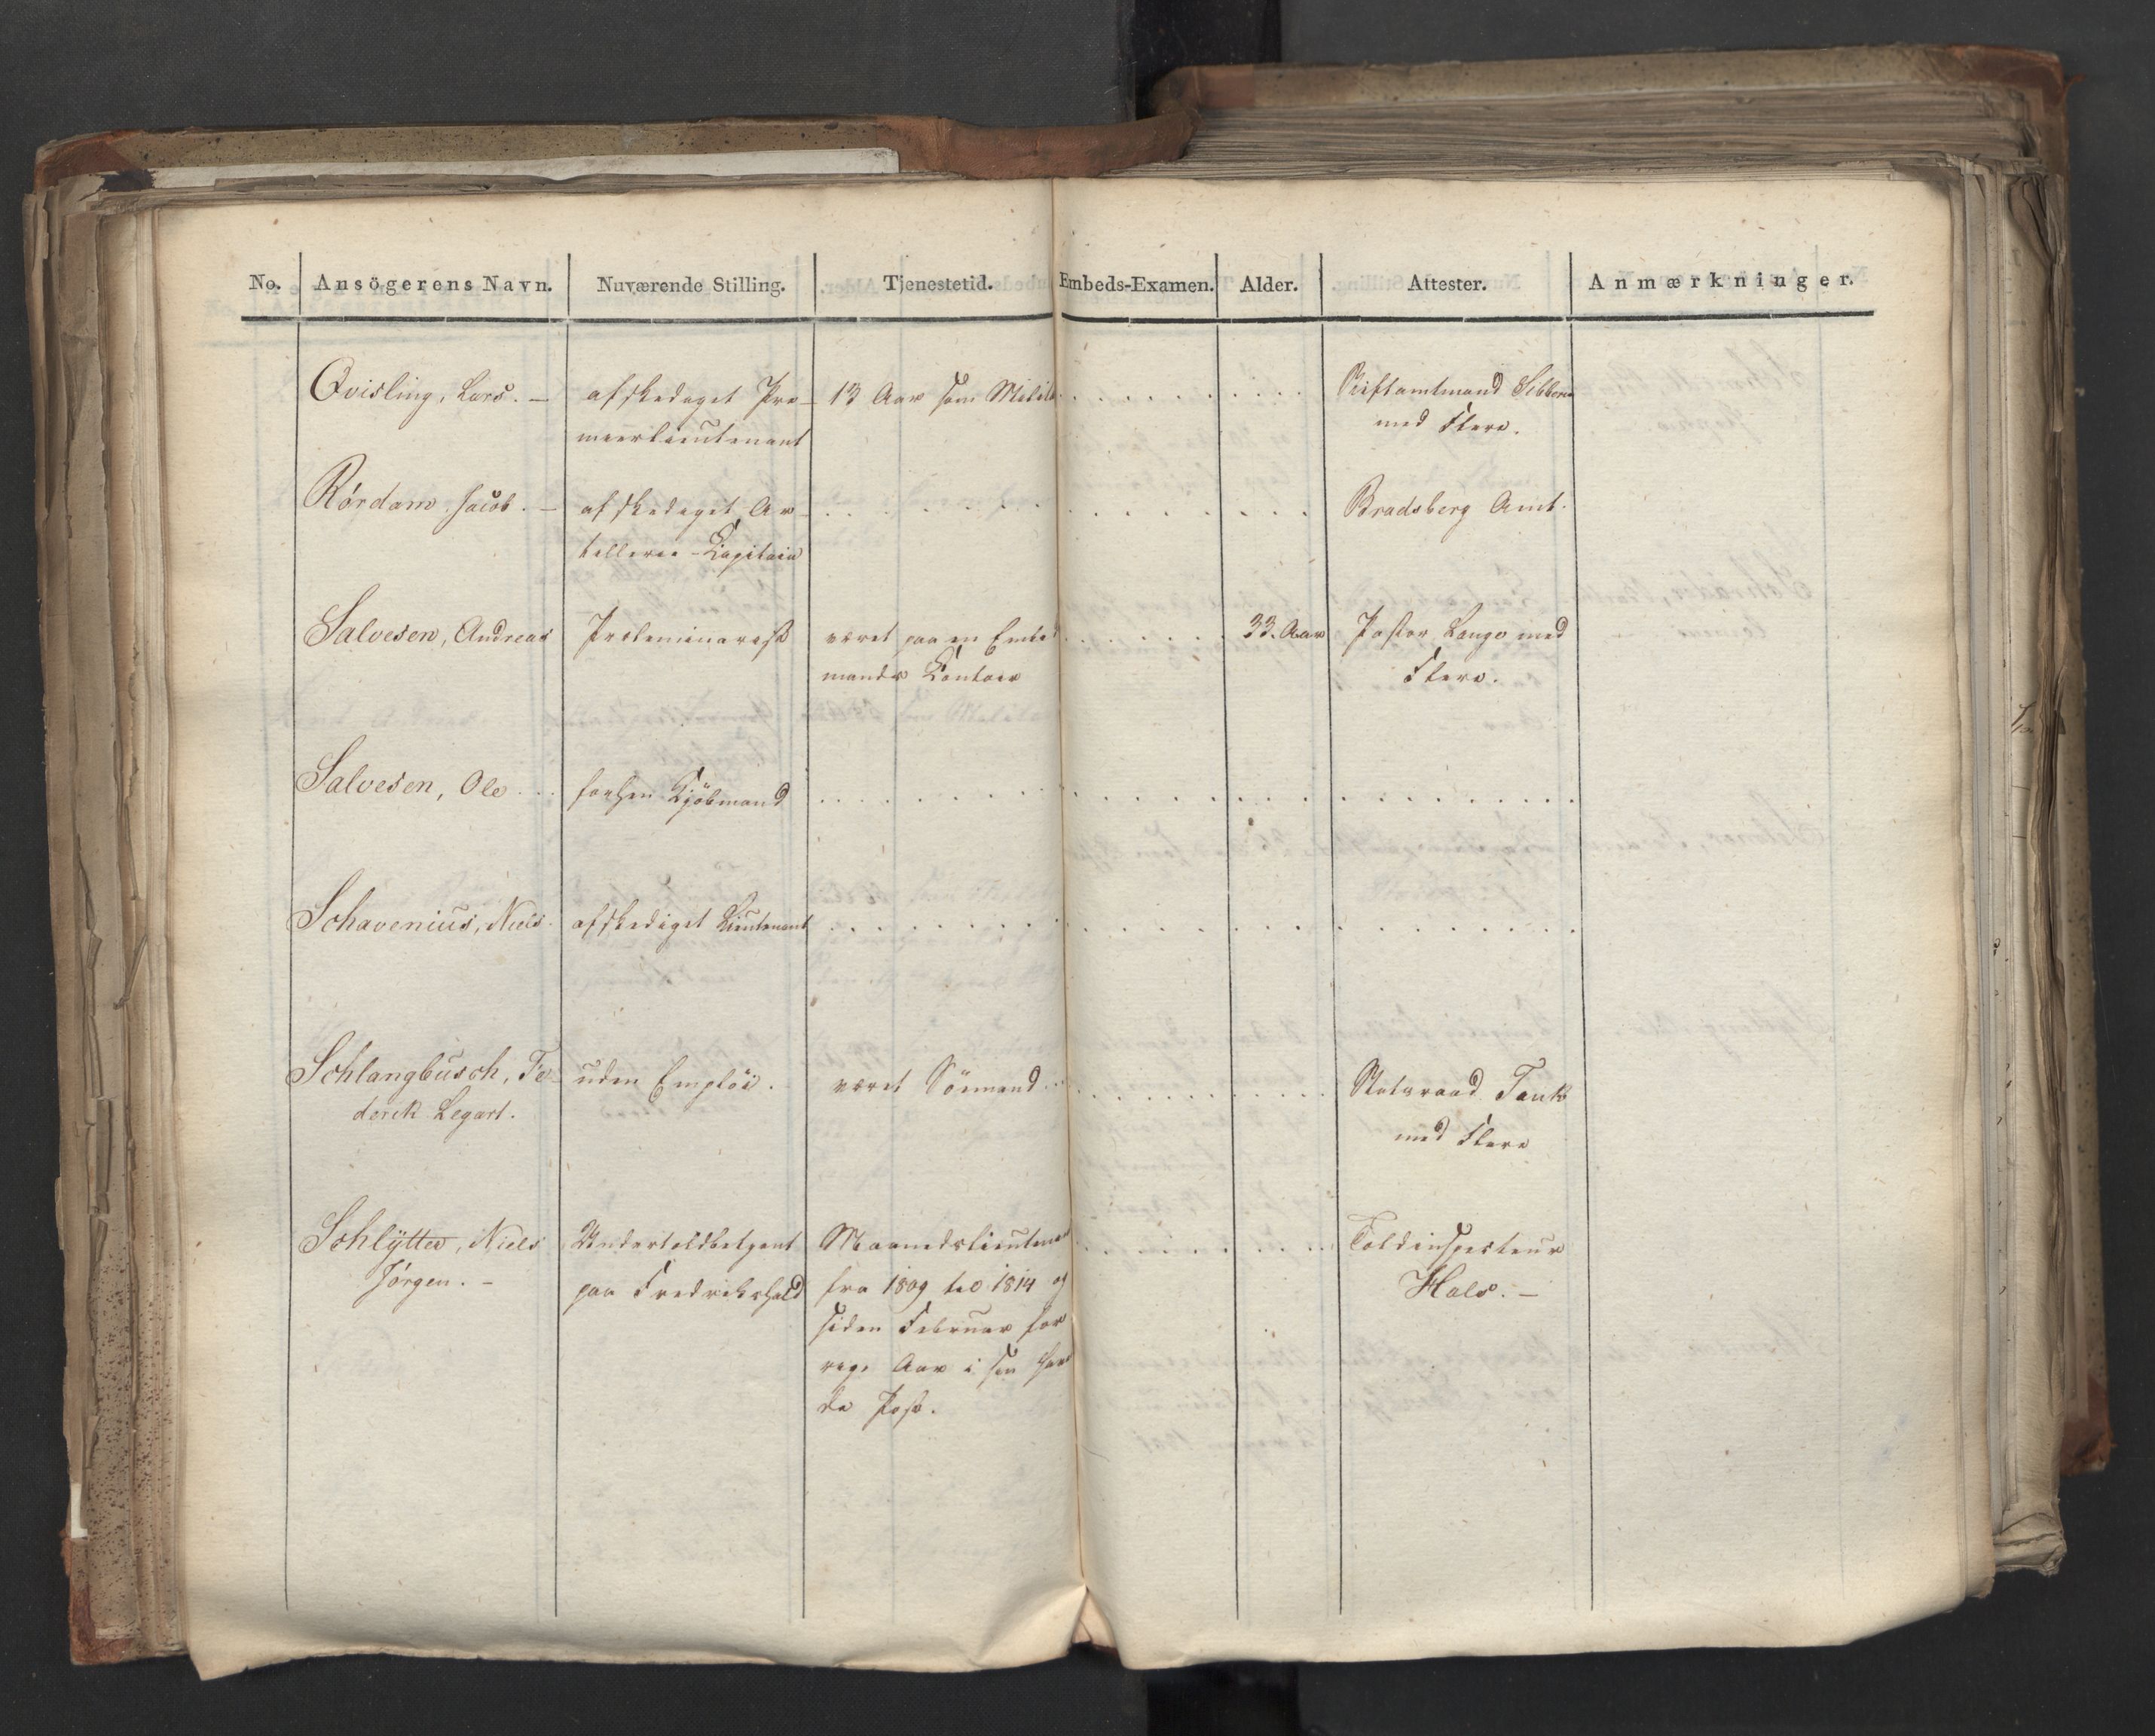 No. Ansögerens Navn. Nuværende Stilling. Tjenestetid. Embeds-Examen. Alder. Attester. Anmærkninger.
Qvisling, Lars. — afskediget Pre- 13 Aar som Militær . . . . . . . . . Stiftamtmand Sibbern
meerlieutenant med Flere.
Rördam Jacob. — afskediget Ar- . . . . . . . . . . . . . Bradsberg Amt.
tillerie-Capitain
Salvesen, Andreas Præliminarist været paa en Embed . . . . . . . 33. Aar Pastor Lange med
mands Contoir Flere.
Salvesen, Ole . . . forhen Kjöbmand . . . . . . . . . . . . . . . . . . . .
Schavenius, Niels. afskediget Lieutenant . . . . . . . . . . . . . . . . . . . .
Schlangbusch, Fe- uden Emploi. været Sömand . . . . . . . . . . . . Statsraad Tank
derik Legart. med Flere
Schlÿtter, Niels Undertoldbetjent Maanedslieutenant . . . . . . . . . Toldinspecteur
Jörgen. — paa Fredrikshald fra 1809 til 1814 og Hals. —
siden Februar for
rige Aar i sin hav
de Post.